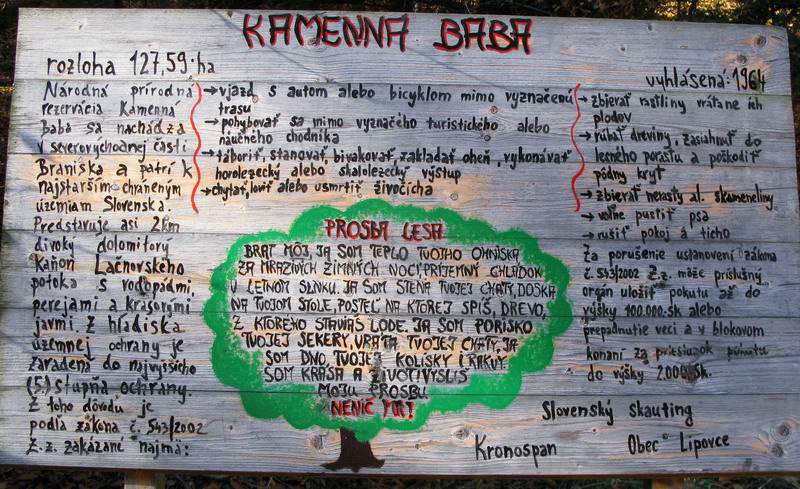 KAMENNA BABA
rozloha 127,59 ha
vyhlásená: 1964
Národná prírodná
rezervácia Kamenná
baba sa nachádza
v severovýchodnej časti
Braniska a patrí k
najstarším chráneným
územiam Slovenska.
Predstavuje asi 2km
divoký dolomitový
kaňon Lačnovského
potoka s vodopádmi,
perejami a krasovými
javmi. Z hľadiska
územnej ochrany je
zaradená do najvyššieho
(5) stupňa ochrany.
Z toho dôvodu je
podľa zákona č. 543/2002
Z.z. zakázané najmä:
→ vjazd s autom alebo bicyklom mimo vyznačenú
trasu
→ pohybovať sa mimo vyznačého turistického alebo
náučného chodníka
→ táboriť, stanovať, bivakovať, zakladať oheň, vykonávať
horolezecký alebo skalolezecký výstup
→ chytať, loviť alebo usmrtiť živočícha
→ zbierať rastliny vrátane ich
plodov
→ rúbať dreviny, zasiahnuť do
lesného porastu a poškodiť
pôdny kryt
→ zbierať nerasty al. skameneliny
→ voľne pustiť psa
→ rušiť pokoj a ticho
Za porušenie ustanovení zákona
č. 543/2002 Z.z. môže príslušný
orgán uložiť pokutu až do
výšky 100.000.sk alebo
prepadnutie veci a v blokovom
konaní za priestupok pokutu
do výšky 2.000 Sk.
PROSBA LESA
BRAT MÔJ, JA SOM TEPLO TVOJHO OHNISKA
ZA MRAZIVÝCH ZIMNÝCH NOCÍ, PRÍJEMNÝ CHLÁDOK
V LETNOM SLNKU. JA SOM STENA TVOJEJ CHATY, DOSKA
NA TVOJOM STOLE, POSTEĽ NA KTOREJ SPÍŠ, DREVO,
Z KTORÉHO STAVIAŠ LODE. JA SOM PORISKO
TVOJEJ SEKERY, VRÁTA TVOJEJ CHATY, JA
SOM DNO TVOJEJ KOLÍSKY I RAKVY.
SOM KRÁSA A ŽIVOT. VYSLYŠ
MOJU PROSBU
NENIČ MA!
Slovenský skauting
Kronospan
Obec Lipovce